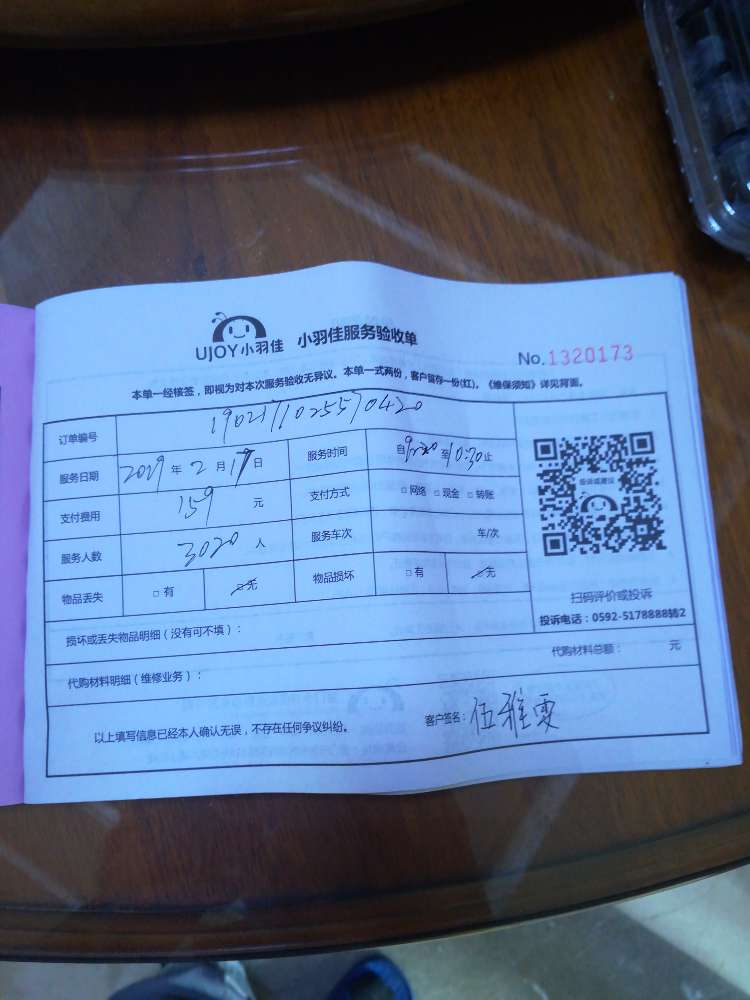 UJOY小羽佳 小羽佳服务验收单
No.1320173
本单一经核签，即视为对本次服务验收无异议。本单一式两份，客户留存一份(红)。《维保须知》详见背面。
订单编号 1902171025570420
服务日期 2019 年 2 月 17 日 服务时间 自 9:20 至 10:30 止
支付费用 159 元 支付方式 □ 网络 □ 现金 □ 转账
服务人数 3020 人 服务车次 车/次
物品丢失 □ 有 □ 无 物品损坏 □ 有 □ 无
投诉或建议
扫码评价或投诉
投诉电话：0592-5178888转2
损坏或丢失物品明细（没有可不填）：
代购材料明细（维修业务）： 代购材料总额： 元
以上填写信息已经本人确认无误，不存在任何争议纠纷。 客户签名：伍雅雯